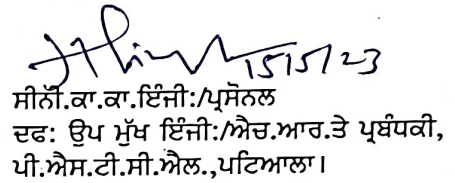 15/5/23
ਸੀਨੀ.ਕਾ.ਕਾ.ਇੰਜੀ:/ਪ੍ਰਸੋਨਲ
ਦਫ: ਉਪ ਮੁੱਖ ਇੰਜੀ:/ਐਚ.ਆਰ.ਤੇ ਪ੍ਰਬੰਧਕੀ,
ਪੀ.ਐਸ.ਟੀ.ਸੀ.ਐਲ.,ਪਟਿਆਲਾ।